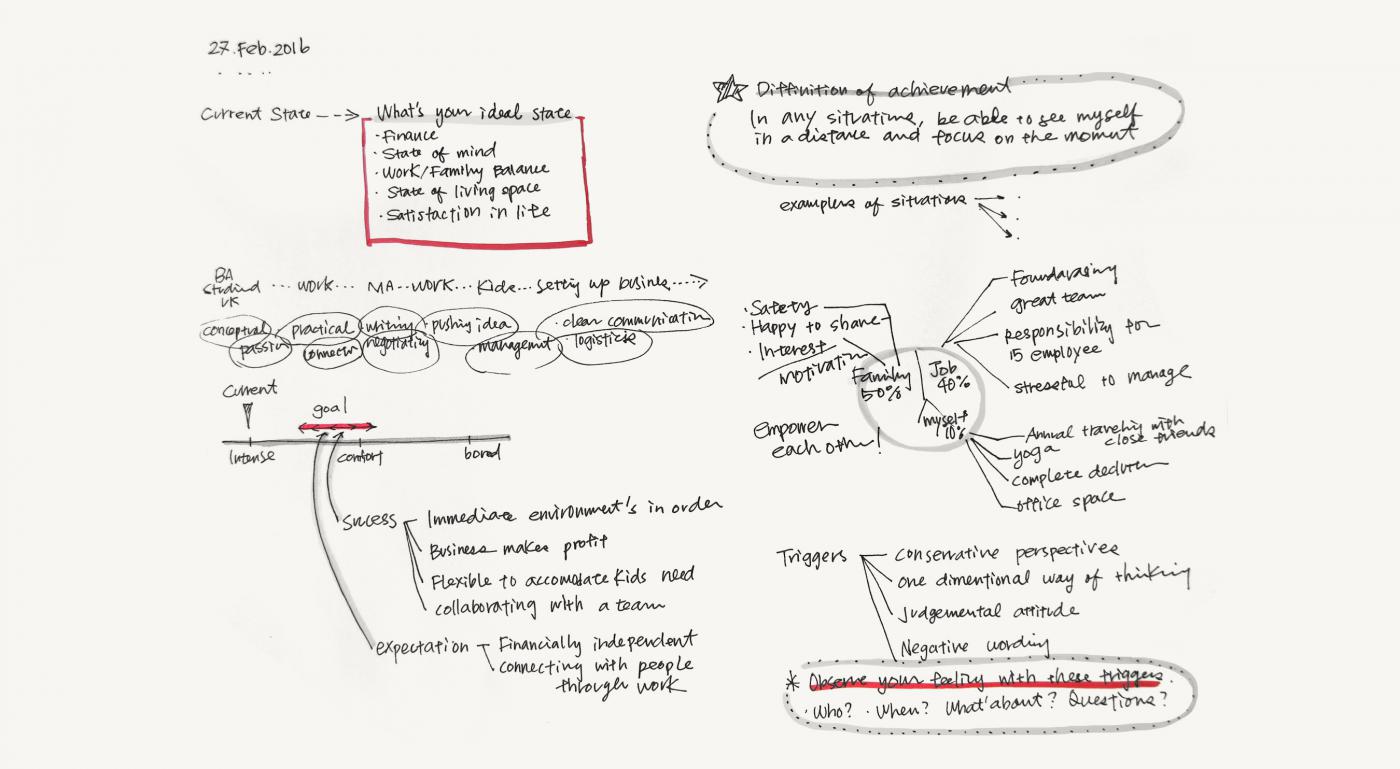 27.Feb.2016
Current State
What's your ideal state
· Finance
· State of mind
· Work/Family Balance
· State of living space
· Satisfaction in life
BA
Studied
UK
... work... MA..work... Kids... setting up busines.....
conceptual
practical
writing
pushing idea
· clear communication
passion
connector
negotiating
management
· logistics
Current
goal
Intense
comfort
bored
success
Immediate environment's in order
Business makes profit
Flexible to accomodate kids need
collaborating with a team
expectation
Financially independent
connecting with people
through work
Diffinition of achievement
In any situations, be able to see myself
in a distance and focus on the moment
examples of situations
· Safety
· Happy to share
· Interest
Motivation
Family
50%
Job
40%
myself
10%
Empower
each other!
great team
responsibility for
15 employee
stressful to manage
Annual traveling with
close friends
yoga
complete
office space
Triggers
conservative perspectives
one dimentional way of thinking
Judgemental attitude
Negative wording
* Observe your feeling with these triggers.
· Who? · When? What about? Questions?